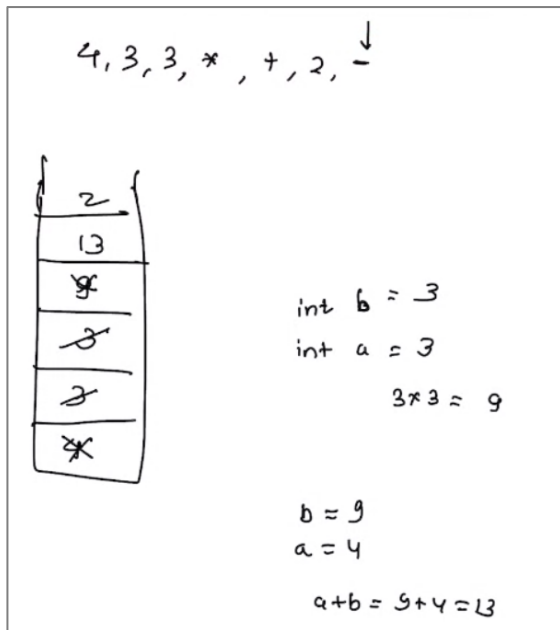 4, 3, 3, *, +, 2, -
2
13
9
3
3
4
int b = 3
int a = 3
3*3 = 9
b = 9
a = 4
a+b = 9+4=13